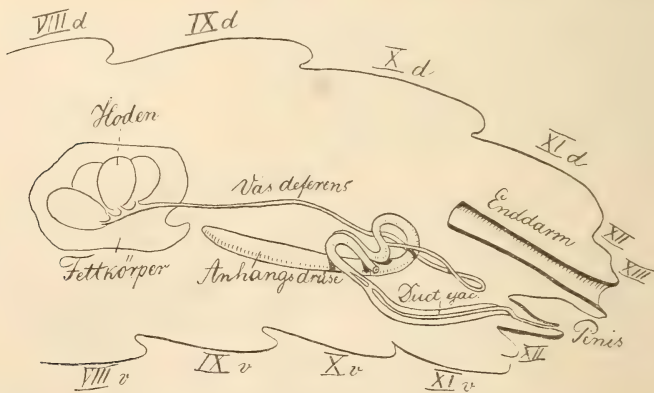 VIII d
IX d
X d
XI d
XII
XIII
Hoden
Vas deferens
Enddarm
Fettkörper
Anhangsdrüse
Duct. ejac.
Penis
VIII v
IX v
X v
XI v
XII